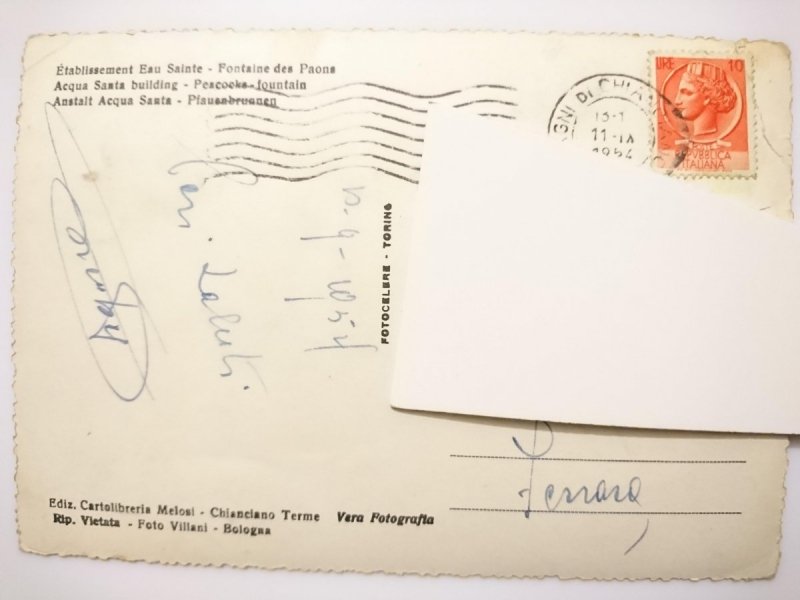 Établissement Eau Sainte - Fontaine des Paons
Acqua Santa building - Peacocks-fountain
Anstalt Acqua Santa - Pfauenbrunnen
LIRE 10
REPUBBLICA
ITALIANA
11-IX
1954
FOTOCELERE - TORINO
Saluti
Ferrara
Ediz. Cartolibreria Melosi - Chianciano Terme Vera Fotografia
Rip. Vietata - Foto Villani - Bologna